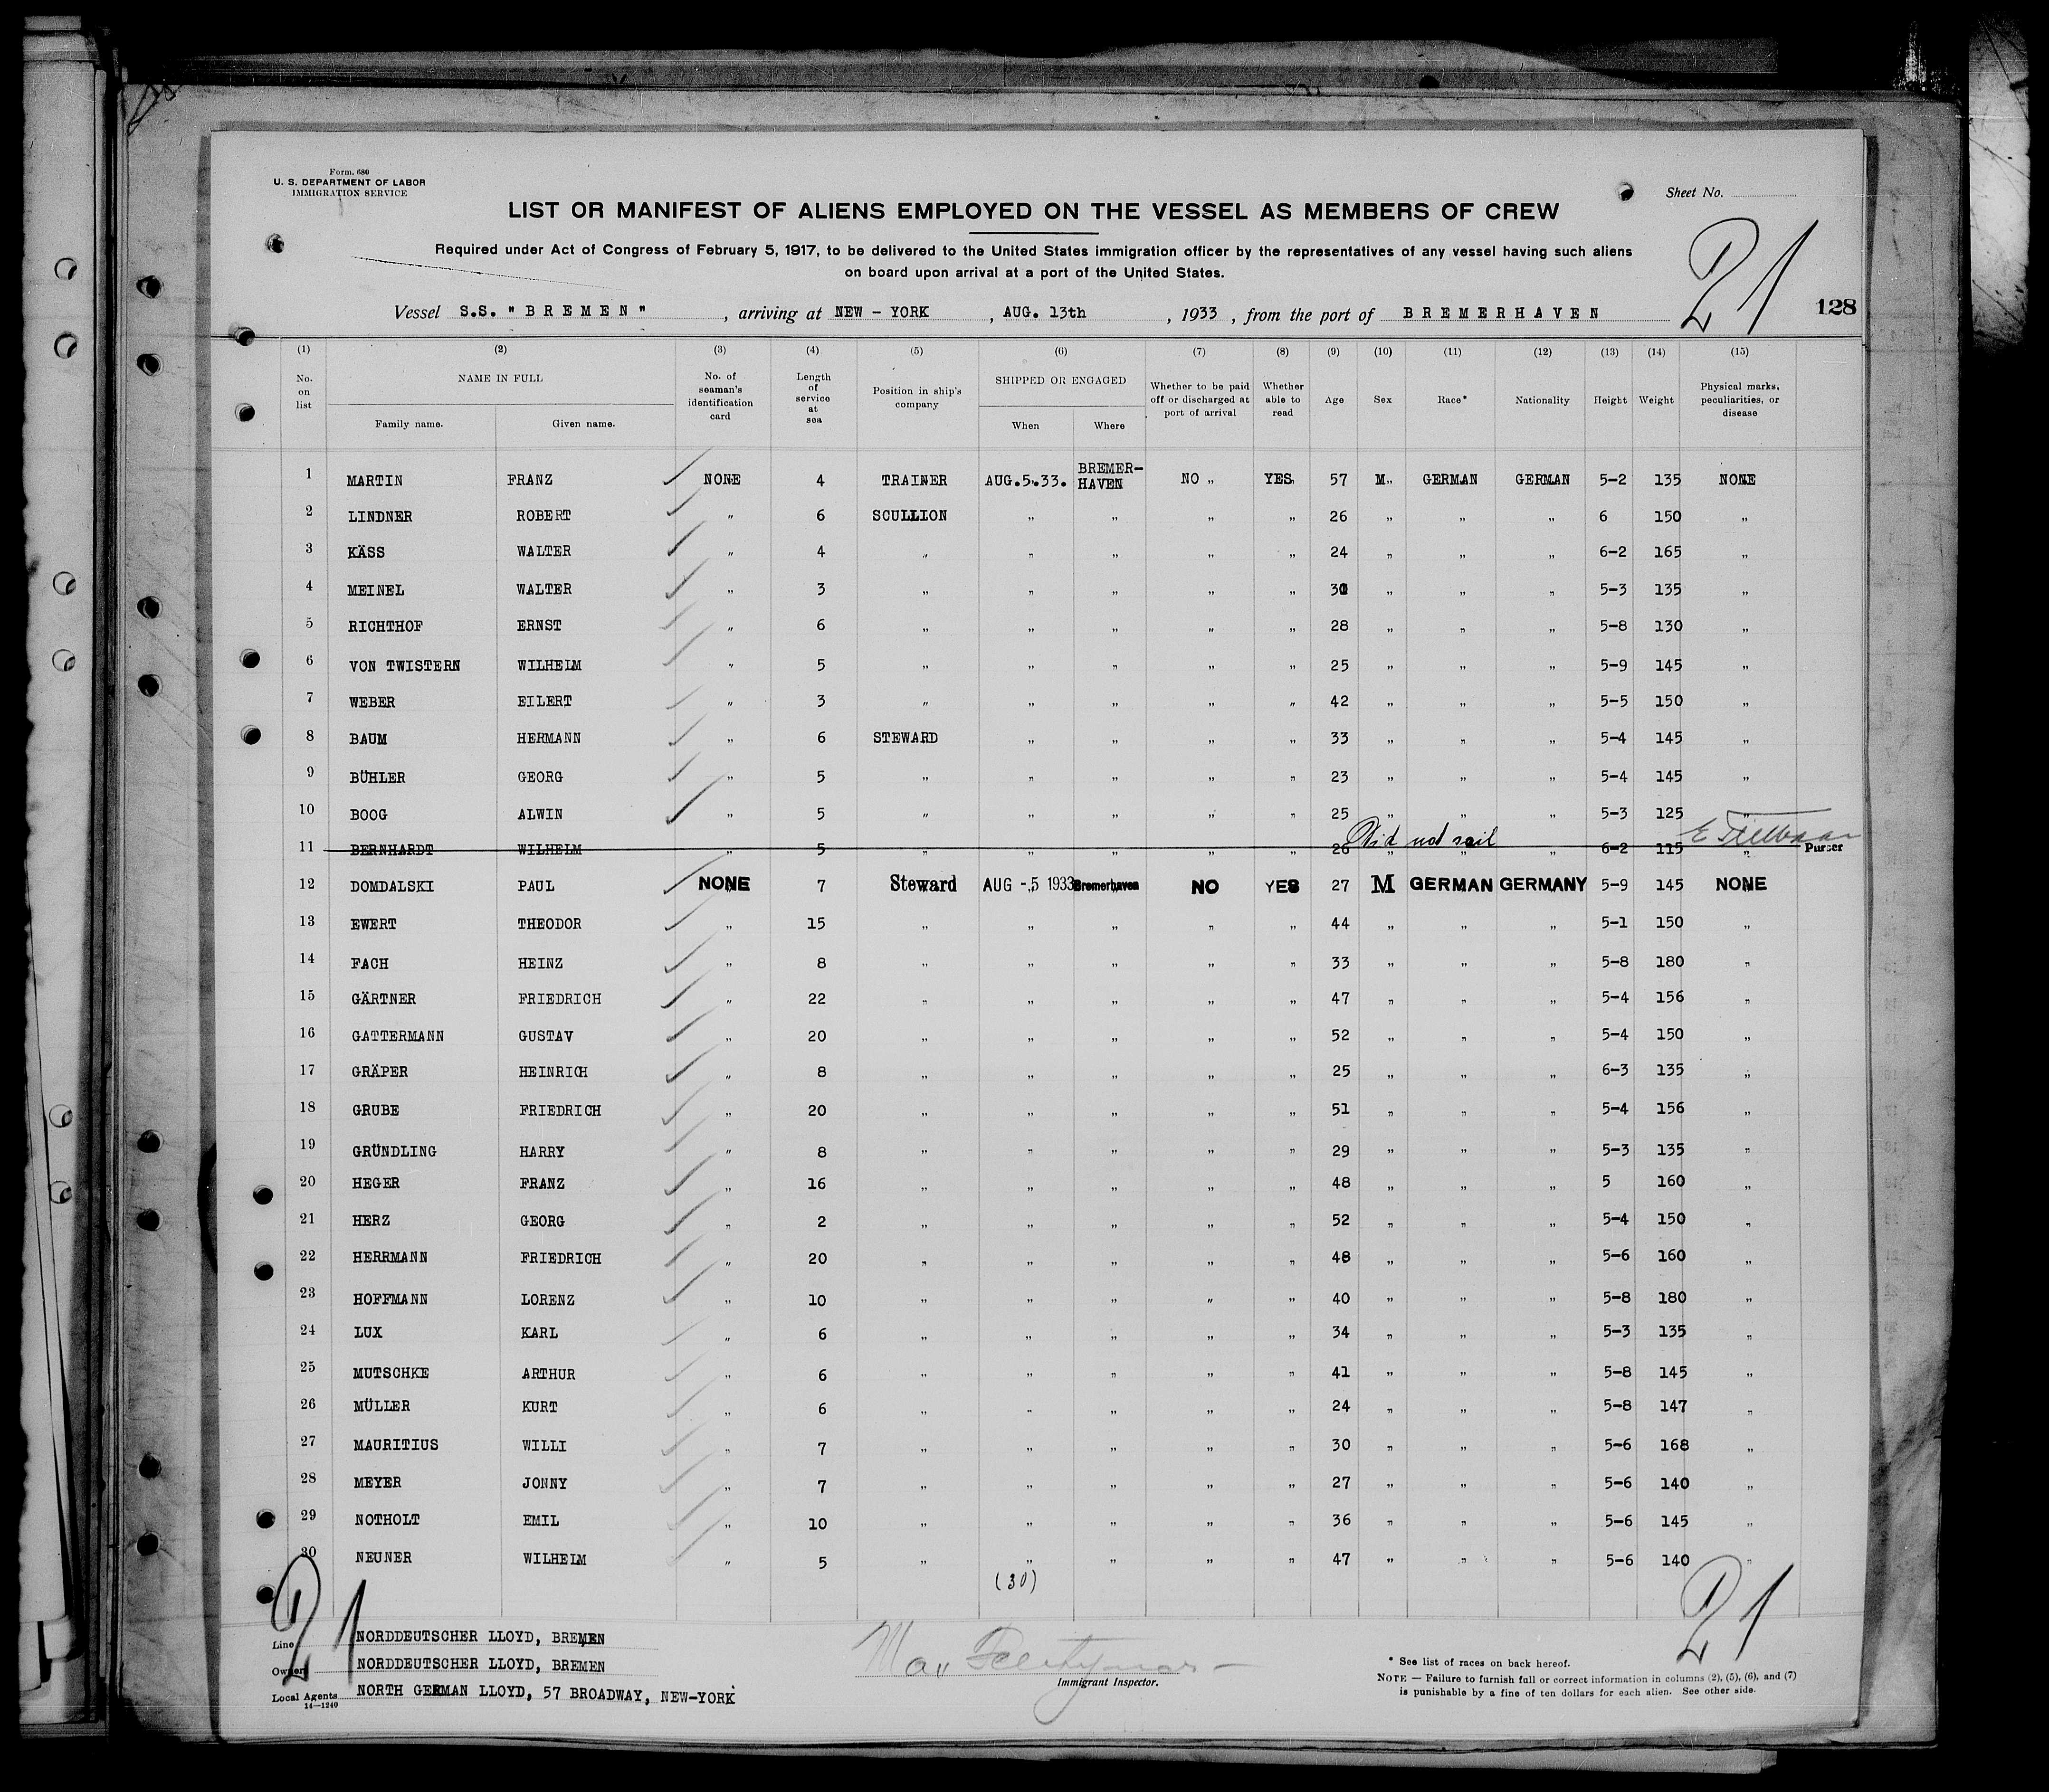 Form. 680
U. S. DEPARTMENT OF LABOR
IMMIGRATION SERVICE
Sheet No.
LIST OR MANIFEST OF ALIENS EMPLOYED ON THE VESSEL AS MEMBERS OF CREW
Required under Act of Congress of February 5, 1917, to be delivered to the United States immigration officer by the representatives of any vessel having such aliens
on board upon arrival at a port of the United States.
21
Vessel S.S. "BREMEN", arriving at NEW - YORK, AUG. 13th, 1933, from the port of BREMERHAVEN
128
(1) (2) (3) (4) (5) (6) (7) (8) (9) (10) (11) (12) (13) (14) (15)
No. on list NAME IN FULL Family name. Given name. No. of seaman's identification card Length of service at sea Position in ship's company SHIPPED OR ENGAGED When Where Whether to be paid off or discharged at port of arrival Whether able to read Age Sex Race* Nationality Height Weight Physical marks, peculiarities, or disease
1 MARTIN FRANZ NONE 4 TRAINER AUG.5.33. BREMER-HAVEN NO „ YES 57 M„ GERMAN GERMAN 5-2 135 NONE
2 LINDNER ROBERT „ 6 SCULLION „ „ „ „ 26 „ „ „ 6 150 „
3 KÄSS WALTER „ 4 „ „ „ „ „ 24 „ „ „ 6-2 165 „
4 MEINEL WALTER „ 3 „ „ „ „ „ „ „ „ 5-3 135 „
5 RICHTHOF ERNST „ 6 „ „ „ „ „ 28 „ „ „ 5-8 130 „
6 VON TWISTERN WILHELM „ 5 „ „ „ „ „ 25 „ „ „ 5-9 145 „
7 WEBER EILERT „ 3 „ „ „ „ „ 42 „ „ „ 5-5 150 „
8 BAUM HERMANN „ 6 STEWARD „ „ „ „ 33 „ „ „ 5-4 145 „
9 BÜHLER GEORG „ 5 „ „ „ „ „ 23 „ „ „ 5-4 145 „
10 BOOG ALWIN „ 5 „ „ „ „ „ 25 „ „ „ 5-3 125 „
Did not sail
11 BERNHARDT WILHELM „ 5 „ „ „ „ „ 26 „ „ „ 6-2 115 „ Purser
12 DOMDALSKI PAUL NONE 7 Steward AUG -5 1933 Bremerhaven NO YES 27 M GERMAN GERMANY 5-9 145 NONE
13 EWERT THEODOR „ 15 „ „ „ „ „ 44 „ „ „ 5-1 150 „
14 FACH HEINZ „ 8 „ „ „ „ „ 33 „ „ „ 5-8 180 „
15 GÄRTNER FRIEDRICH „ 22 „ „ „ „ „ 47 „ „ „ 5-4 156 „
16 GATTERMANN GUSTAV „ 20 „ „ „ „ „ 52 „ „ „ 5-4 150 „
17 GRÄPER HEINRICH „ 8 „ „ „ „ „ 25 „ „ „ 6-3 135 „
18 GRUBE FRIEDRICH „ 20 „ „ „ „ „ 51 „ „ „ 5-4 156 „
19 GRÜNDLING HARRY „ 8 „ „ „ „ „ 29 „ „ „ 5-3 135 „
20 HEGER FRANZ „ 16 „ „ „ „ „ 48 „ „ „ 5 160 „
21 HERZ GEORG „ 2 „ „ „ „ „ 52 „ „ „ 5-4 150 „
22 HERRMANN FRIEDRICH „ 20 „ „ „ „ „ 48 „ „ „ 5-6 160 „
23 HOFFMANN LORENZ „ 10 „ „ „ „ „ 40 „ „ „ 5-8 180 „
24 LUX KARL „ 6 „ „ „ „ „ 34 „ „ „ 5-3 135 „
25 MUTSCHKE ARTHUR „ 6 „ „ „ „ „ 41 „ „ „ 5-8 145 „
26 MÜLLER KURT „ 6 „ „ „ „ „ 24 „ „ „ 5-8 147 „
27 MAURITIUS WILLI „ 7 „ „ „ „ „ 30 „ „ „ 5-6 168 „
28 MEYER JONNY „ 7 „ „ „ „ „ 27 „ „ „ 5-6 140 „
29 NOTHOLT EMIL „ 10 „ „ „ „ „ 36 „ „ „ 5-6 145 „
30 NEUNER WILHELM „ 5 „ „ „ „ „ 47 „ „ „ 5-6 140 „
(30)
21
21
Line NORDDEUTSCHER LLOYD, BREMEN
Owners NORDDEUTSCHER LLOYD, BREMEN
Local Agents NORTH GERMAN LLOYD, 57 BROADWAY, NEW-YORK
14—1240
Immigrant Inspector.
* See list of races on back hereof.
NOTE — Failure to furnish full or correct information in columns (2), (5), (6), and (7)
is punishable by a fine of ten dollars for each alien. See other side.